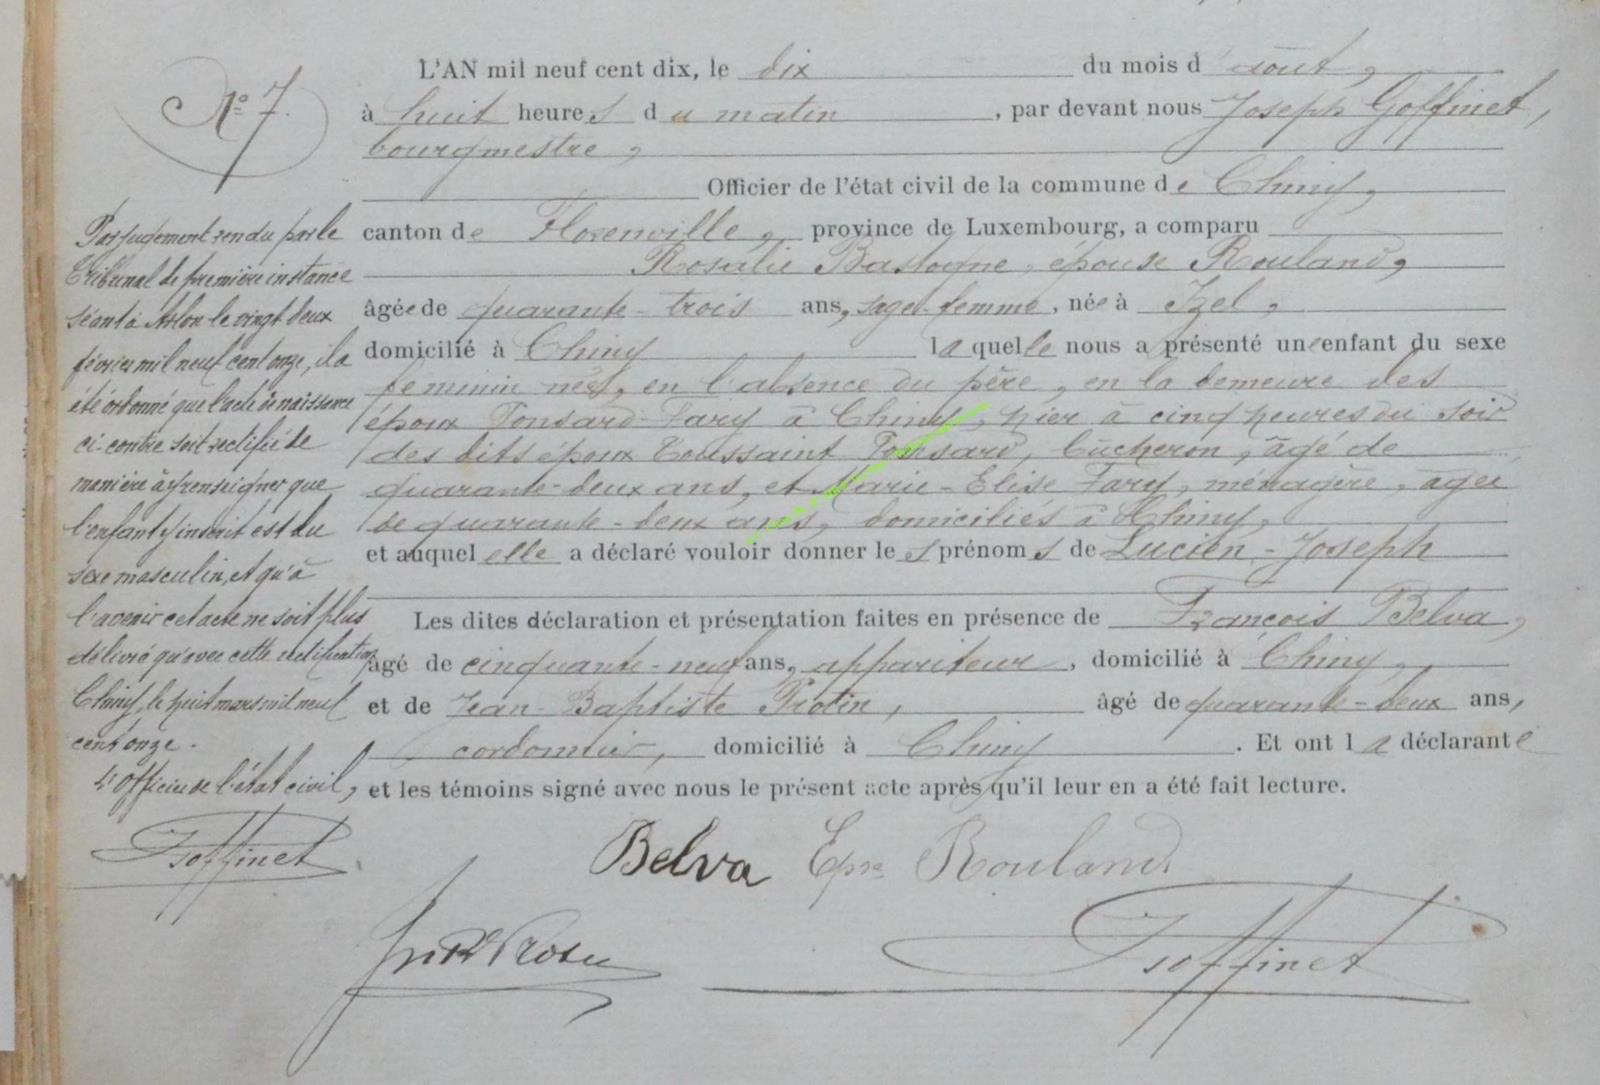 N° 7.
L'AN mil neuf cent dix, le dix du mois d'août,
à huit heures du matin, par devant nous Joseph Goffinet,
bourgmestre,
Officier de l'état civil de la commune de Chiny,
canton de Florenville, province de Luxembourg, a comparu
Rosalie Bastogne, épouse Rouland,
âgée de quarante-trois ans, sage-femme, née à Izel,
domicilié à Chiny laquelle nous a présenté une enfant du sexe
feminin née, en l'absence du père, en la demeure des
époux Ponsard-Fary à Chiny, hier à cinq heures du soir
des dits époux Toussaint Ponsard, bûcheron, âgé de
quarante-deux ans, et Marie-Elise Fary, ménagère, âgée
de quarante-deux ans, domiciliés à Chiny,
et auquel elle a déclaré vouloir donner les prénoms de Lucien-Joseph
Les dites déclaration et présentation faites en présence de François Belva,
âgé de cinquante-neuf ans, appariteur, domicilié à Chiny,
et de Jean-Baptiste Protin, âgé de quarante-deux ans,
cordonnier, domicilié à Chiny. Et ont la déclarante
et les témoins signé avec nous le présent acte après qu'il leur en a été fait lecture.
Par jugement rendu par le
Tribunal de première instance
séant à Arlon le vingt deux
février mil neuf cent onze, il a
été ordonné que l'acte de naissance
ci-contre soit rectifié de
manière à y renseigner que
l'enfant y inscrit est du
sexe masculin, et qu'à
l'avenir cet acte ne soit plus
délivré qu'avec cette rectification
Chiny, le huit mars mil neuf
cent onze.
L'officier de l'état civil,
J Goffinet
Belva Epse Rouland.
J Goffinet